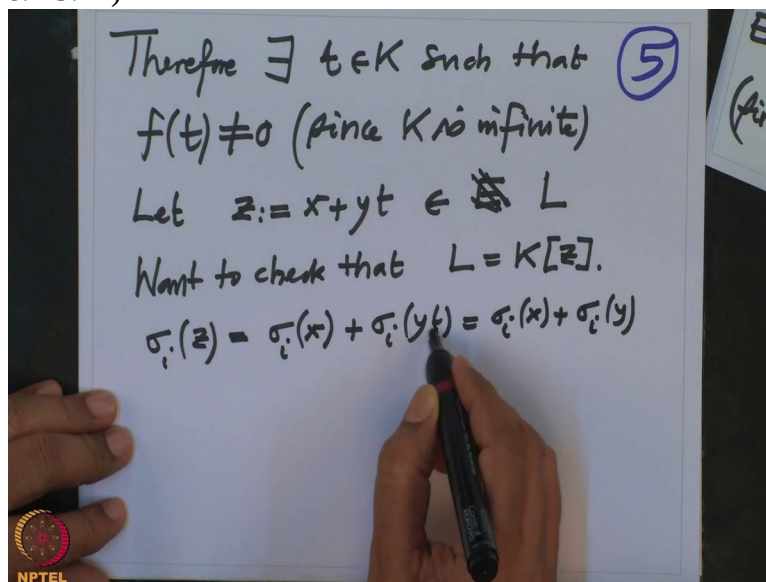 Therefore ∃ t ∈ K such that
5
f(t) ≠ 0 (since K is infinite)
Let z := x + yt ∈ L
Want to check that L = K[z].
σᵢ(z) = σᵢ(x) + σᵢ(yt) = σᵢ(x) + σᵢ(y)
NPTEL